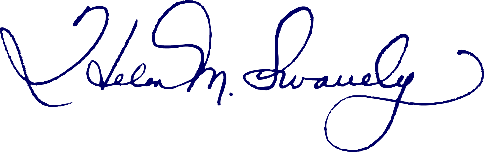 Helen M. Swauely